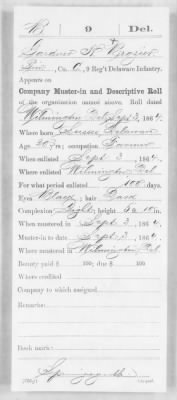 B | 9 | Del.
Gardner H Brasier
Pvt., Co. C, 9 Reg't Delaware Infantry.
Appears on
Company Muster-in and Descriptive Roll
of the organization named above. Roll dated
Wilmington Del, Sept 3, 1864.
Where born Sussex, Delaware
Age 20 y'rs; occupation Farmer
When enlisted Sept 3, 1864
Where enlisted Wilmington Del
For what period enlisted 100 days.
Eyes Black; hair Dark
Complexion Light; height 5 ft. 10 in.
When mustered in Sept 3, 1864
Muster-in to date Sept 3, 1864
Where mustered in Wilmington Del
Bounty paid $ 100; due $ 100
Where credited
Company to which assigned
Remarks:
Book mark:
Copyist.